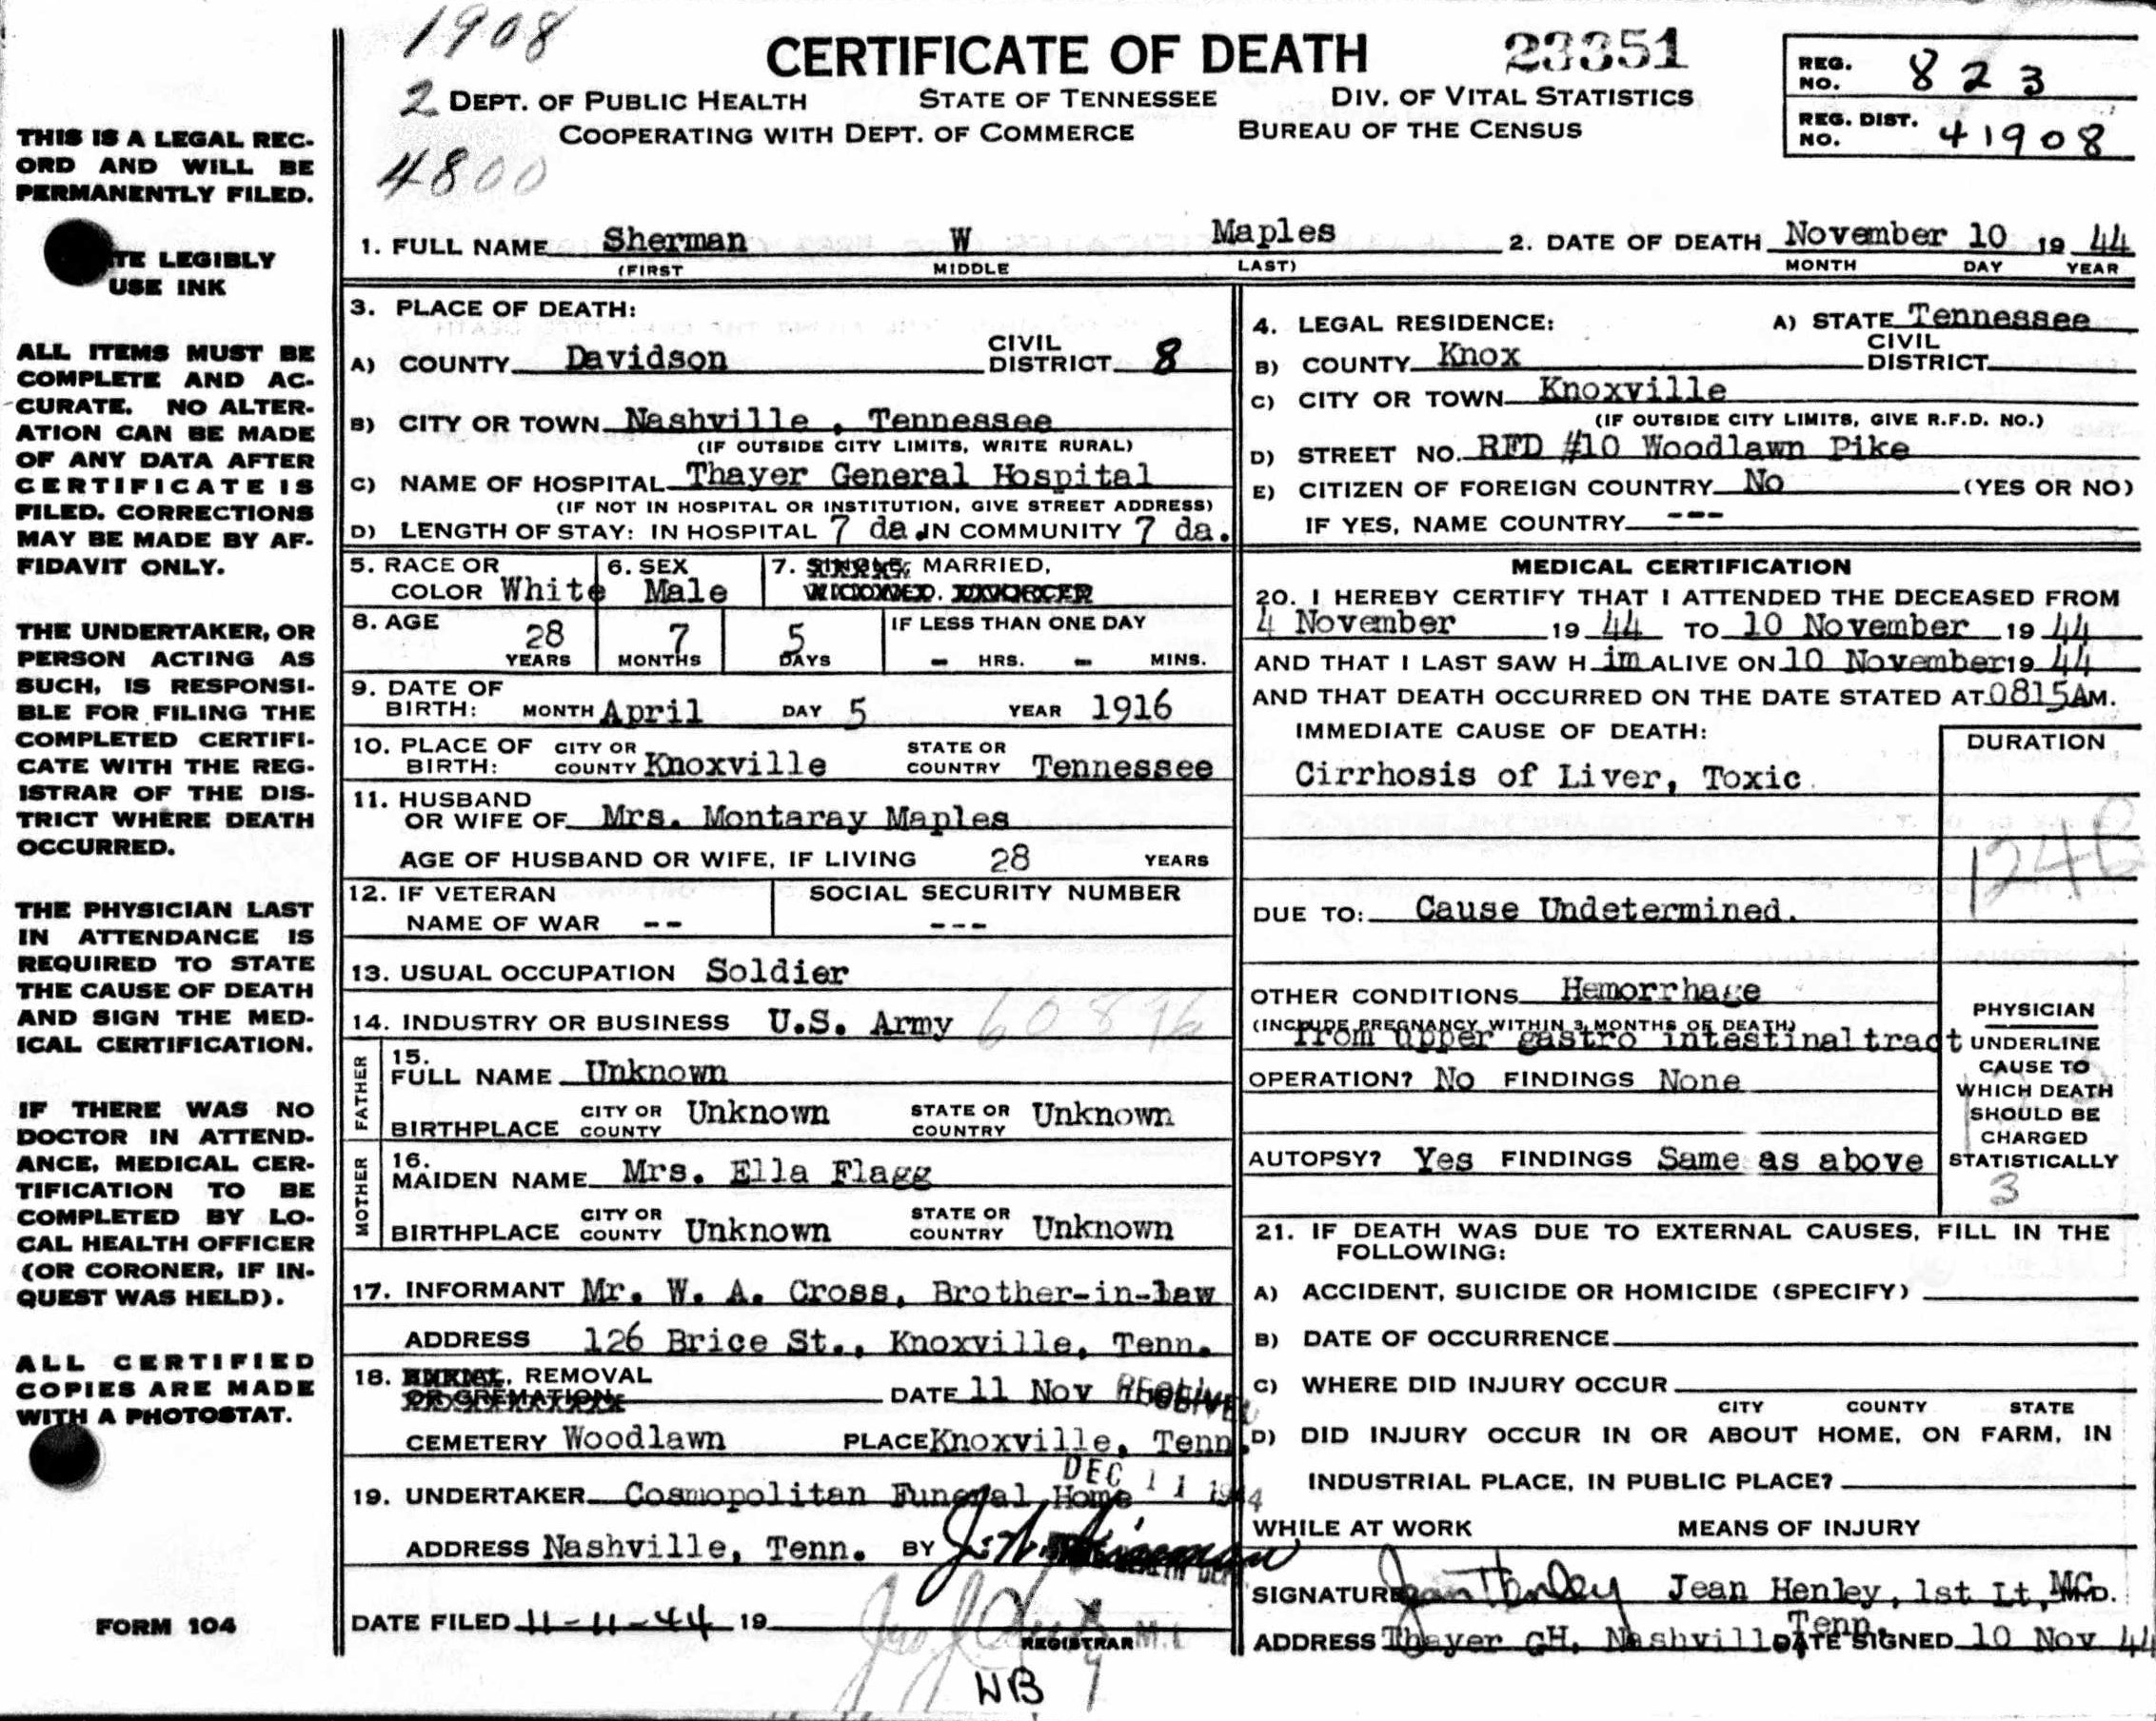 1908
CERTIFICATE OF DEATH 23351
REG. NO. 823
2 DEPT. OF PUBLIC HEALTH STATE OF TENNESSEE DIV. OF VITAL STATISTICS
COOPERATING WITH DEPT. OF COMMERCE BUREAU OF THE CENSUS
REG. DIST. NO. 41908
4800
THIS IS A LEGAL REC-
ORD AND WILL BE
PERMANENTLY FILED.
LEGIBLY
USE INK
ALL ITEMS MUST BE
COMPLETE AND AC-
CURATE. NO ALTER-
ATION CAN BE MADE
OF ANY DATA AFTER
CERTIFICATE IS
FILED. CORRECTIONS
MAY BE MADE BY AF-
FIDAVIT ONLY.
THE UNDERTAKER, OR
PERSON ACTING AS
SUCH, IS RESPONSI-
BLE FOR FILING THE
COMPLETED CERTIFI-
CATE WITH THE REG-
ISTRAR OF THE DIS-
TRICT WHERE DEATH
OCCURRED.
THE PHYSICIAN LAST
IN ATTENDANCE IS
REQUIRED TO STATE
THE CAUSE OF DEATH
AND SIGN THE MED-
ICAL CERTIFICATION.
IF THERE WAS NO
DOCTOR IN ATTEND-
ANCE, MEDICAL CER-
TIFICATION TO BE
COMPLETED BY LO-
CAL HEALTH OFFICER
(OR CORONER, IF IN-
QUEST WAS HELD).
ALL CERTIFIED
COPIES ARE MADE
WITH A PHOTOSTAT.
FORM 104
1. FULL NAME Sherman W Maples 2. DATE OF DEATH November 10 19 44
(FIRST MIDDLE LAST) MONTH DAY YEAR
3. PLACE OF DEATH:
A) COUNTY Davidson CIVIL DISTRICT 8
B) CITY OR TOWN Nashville , Tennessee
(IF OUTSIDE CITY LIMITS, WRITE RURAL)
C) NAME OF HOSPITAL Thayer General Hospital
(IF NOT IN HOSPITAL OR INSTITUTION, GIVE STREET ADDRESS)
D) LENGTH OF STAY: IN HOSPITAL 7 da. IN COMMUNITY 7 da.
5. RACE OR COLOR White 6. SEX Male 7. SINGLE, MARRIED,
WIDOWED. DIVORCED
8. AGE 28 YEARS 7 MONTHS 5 DAYS IF LESS THAN ONE DAY - HRS. - MINS.
9. DATE OF BIRTH: MONTH April DAY 5 YEAR 1916
10. PLACE OF BIRTH: CITY OR COUNTY Knoxville STATE OR COUNTRY Tennessee
11. HUSBAND
OR WIFE OF Mrs. Montaray Maples
AGE OF HUSBAND OR WIFE, IF LIVING 28 YEARS
12. IF VETERAN NAME OF WAR -- SOCIAL SECURITY NUMBER ---
13. USUAL OCCUPATION Soldier
14. INDUSTRY OR BUSINESS U.S. Army
FATHER
15. FULL NAME Unknown
BIRTHPLACE CITY OR COUNTY Unknown STATE OR COUNTRY Unknown
MOTHER
16. MAIDEN NAME Mrs. Ella Flagg
BIRTHPLACE CITY OR COUNTY Unknown STATE OR COUNTRY Unknown
17. INFORMANT Mr. W. A. Cross, Brother-in-law
ADDRESS 126 Brice St., Knoxville, Tenn.
18. BURIAL, REMOVAL
OR CREMATION DATE 11 Nov RECEIVED
CEMETERY Woodlawn PLACE Knoxville, Tenn.
DEC 11 1944
19. UNDERTAKER Cosmopolitan Funeral Home
ADDRESS Nashville, Tenn. BY
DATE FILED 11-11-44 19
REGISTRAR
4. LEGAL RESIDENCE: A) STATE Tennessee
B) COUNTY Knox CIVIL DISTRICT
C) CITY OR TOWN Knoxville
(IF OUTSIDE CITY LIMITS, GIVE R.F.D. NO.)
D) STREET NO. RFD #10 Woodlawn Pike
E) CITIZEN OF FOREIGN COUNTRY No (YES OR NO)
IF YES, NAME COUNTRY ---
MEDICAL CERTIFICATION
20. I HEREBY CERTIFY THAT I ATTENDED THE DECEASED FROM
4 November 19 44 TO 10 November 19 44
AND THAT I LAST SAW H im ALIVE ON 10 November 19 44
AND THAT DEATH OCCURRED ON THE DATE STATED AT 0815 AM.
IMMEDIATE CAUSE OF DEATH: DURATION
Cirrhosis of Liver, Toxic
124B
DUE TO: Cause Undetermined.
OTHER CONDITIONS Hemorrhage
(INCLUDE PREGNANCY WITHIN 3 MONTHS OF DEATH)
from upper gastro intestinal tract
OPERATION? No FINDINGS None
AUTOPSY? Yes FINDINGS Same as above
PHYSICIAN
UNDERLINE
CAUSE TO
WHICH DEATH
SHOULD BE
CHARGED
STATISTICALLY
3
21. IF DEATH WAS DUE TO EXTERNAL CAUSES, FILL IN THE
FOLLOWING:
A) ACCIDENT, SUICIDE OR HOMICIDE (SPECIFY)
B) DATE OF OCCURRENCE
C) WHERE DID INJURY OCCUR
CITY COUNTY STATE
D) DID INJURY OCCUR IN OR ABOUT HOME, ON FARM, IN
INDUSTRIAL PLACE, IN PUBLIC PLACE?
WHILE AT WORK MEANS OF INJURY
SIGNATURE Jean Henley Jean Henley, 1st Lt, MC M.D.
ADDRESS Thayer GH, Nashville, Tenn. DATE SIGNED 10 Nov 44